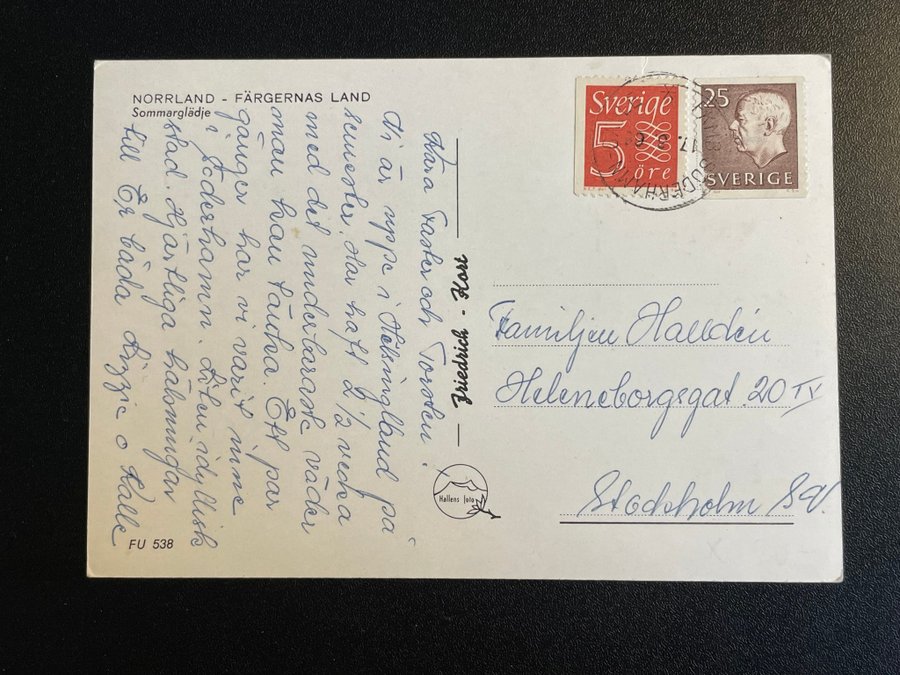 NORRLAND - FÄRGERNAS LAND
Sommarglädje
Kära Faster och Torsten.
Vi är uppe i Hälsingland på
semester. Har haft 2 1/2 vecka
med det underbaraste väder
man kan tänka. Ett par
gånger har vi varit inne
i Söderhamn. Liten idyllisk
stad. Hjärtliga hälsningar
till Er båda Lizzie o Kalle
FU 538
Friedrich - Kort
Hallens foto
Sverige
5
öre
25
SVERIGE
SÖDERHAMN
Familjen Halldén
Heleneborgsgat. 20 IV
Stockholm Sv.